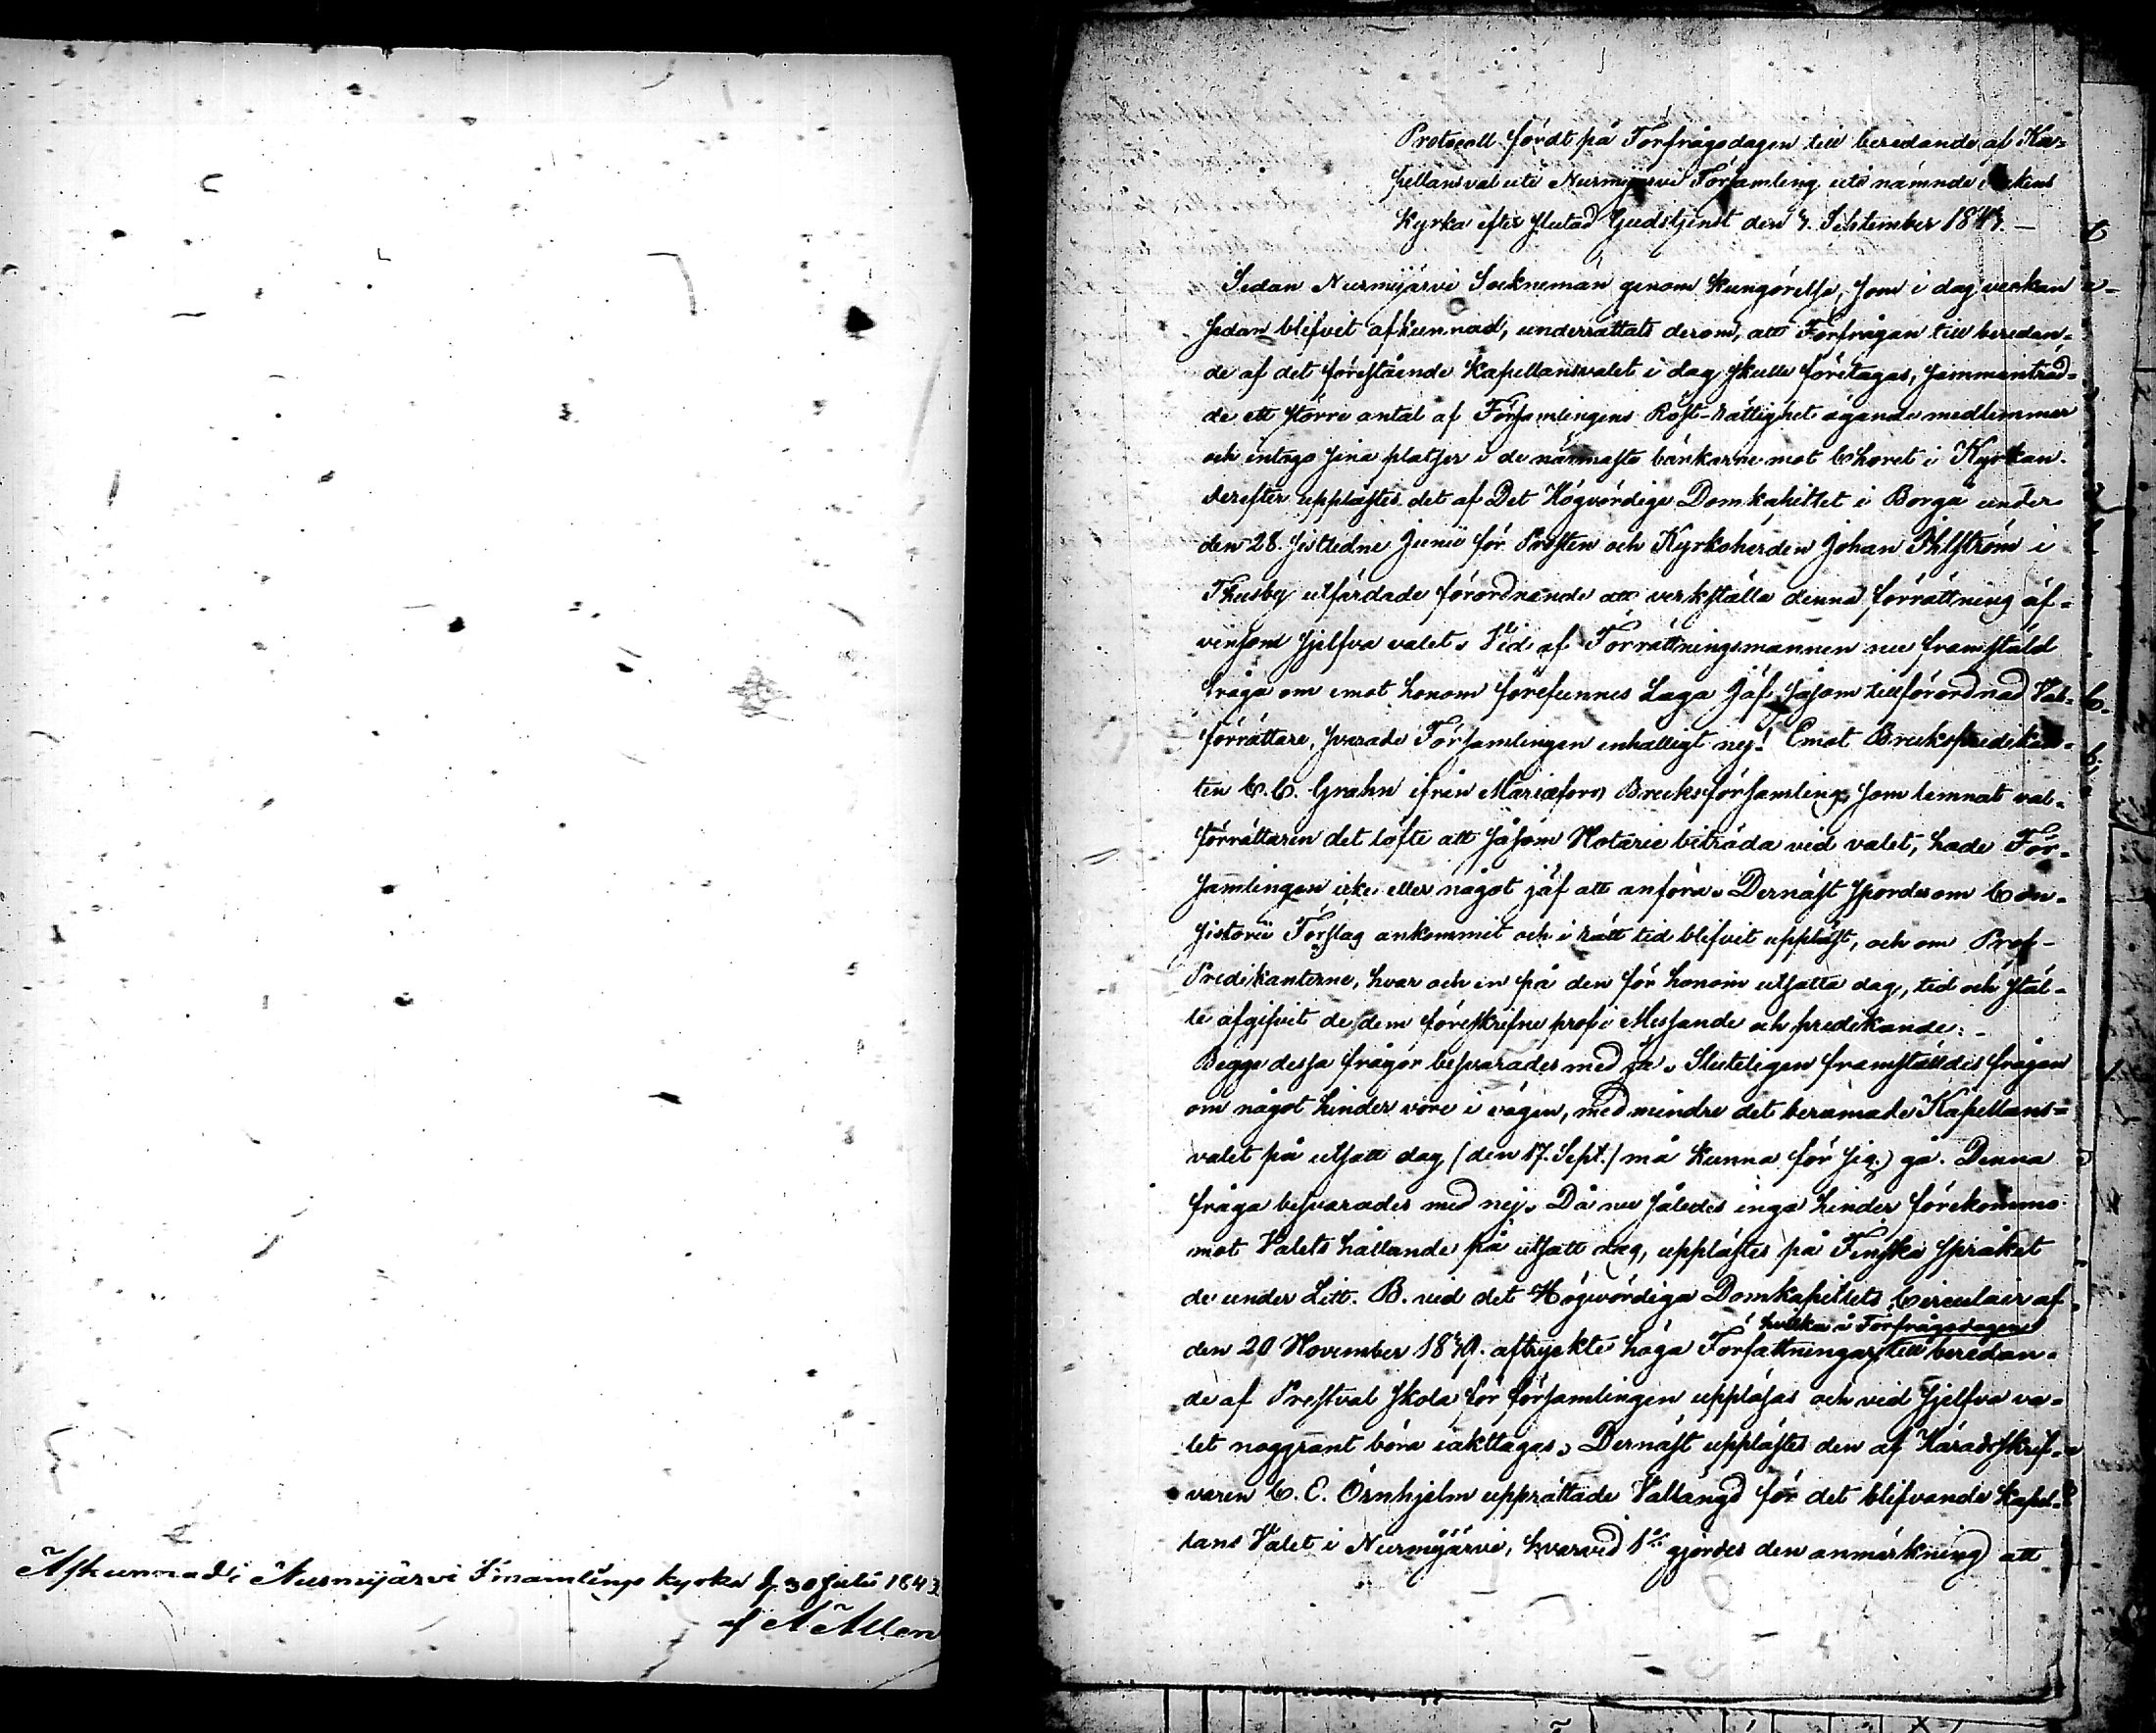 Afkunnad i Nurmijärvi Församlings kyrka d. 30 Julii 1843
af A Allen
Protocoll fördt på Förfrågsdagen till beredande af Ka-
pellansval uti Nurmijärvi Församling uti nämnde Sockens
Kyrka efter slutad Gudstjenst den 3. September 1843. —
Sedan Nurmijärvi Socknemän genom kungörelse, som i dag veckan
sedan blifvit afkunnad, underrättats derom, att Förfrågan till beredan-
de af det förestående Kapellansvalet i dag skulle företagas, sammanträd-
de ett större antal af Församlingens Röst-rättighet ägande medlemmar
och intogo sina platser i de närmaste bänkarne mot Choret i Kyrkan.
derefter upplästes det af Det Högvördige Domkapitlet i Borgå under
den 28. sistledne Junii för Prosten och Kyrkoherden Johan Åhlström i
Thusby utfärdade förordnande att verkställa denna förrättning äf-
vensom sjelfva valet. Vid af Förrättningsmannen nu framstäld
fråga om emot honom förefunnes Laga Jäf såsom tillförordnad Val-
förrättare, svarade Församlingen enhälligt nej! Emot Bruкspredikan-
ten C. C. Grahn ifrån Mariæfors Bruksförsamling, som lemnat val-
förrättaren det löfte att såsom Notarie biträda vid valet, hade För-
samlingen icke eller något jäf att anföra. Dernäst spordes om Con-
sistorii Förslag ankommit och i rätt tid blifvit uppläst, och om Prof-
Predikanterne, hvar och en på den för honom utsatta dag, tid och stäl-
le afgifvit de dem föreskrifne prof i Messande och predikande: —
Begge dessa frågor besvarades med ja. Sluteligen framställdes frågan
om något hinder vore i vägen, med mindre det beramade Kapellans-
valet på utsatt dag (den 17. Sept.) må kunna för sig gå. Denna
fråga besvarades med nej. Då nu således inga hinder förekommo
mot Valets hållande på utsatt dag, upplästes på Finska språket
de under Litt. B. vid det Högvördiga Domkapitlets Circulair af
hvilka i Förfrågsdagen
den 20 November 1839. aftryckte höga Författningar, till beredan-
de af Prestval skola för församlingen uppläsas och vid sjelfva va-
let noggrant böra iakttagas. Dernäst upplästes den af Häradsskrif-
varen C. E. Örnhjelm upprättade Vallängd för det blifvande Kapel-
lans Valet i Nurmijärvi, hvarvid 1:o gjordes den anmärkning att